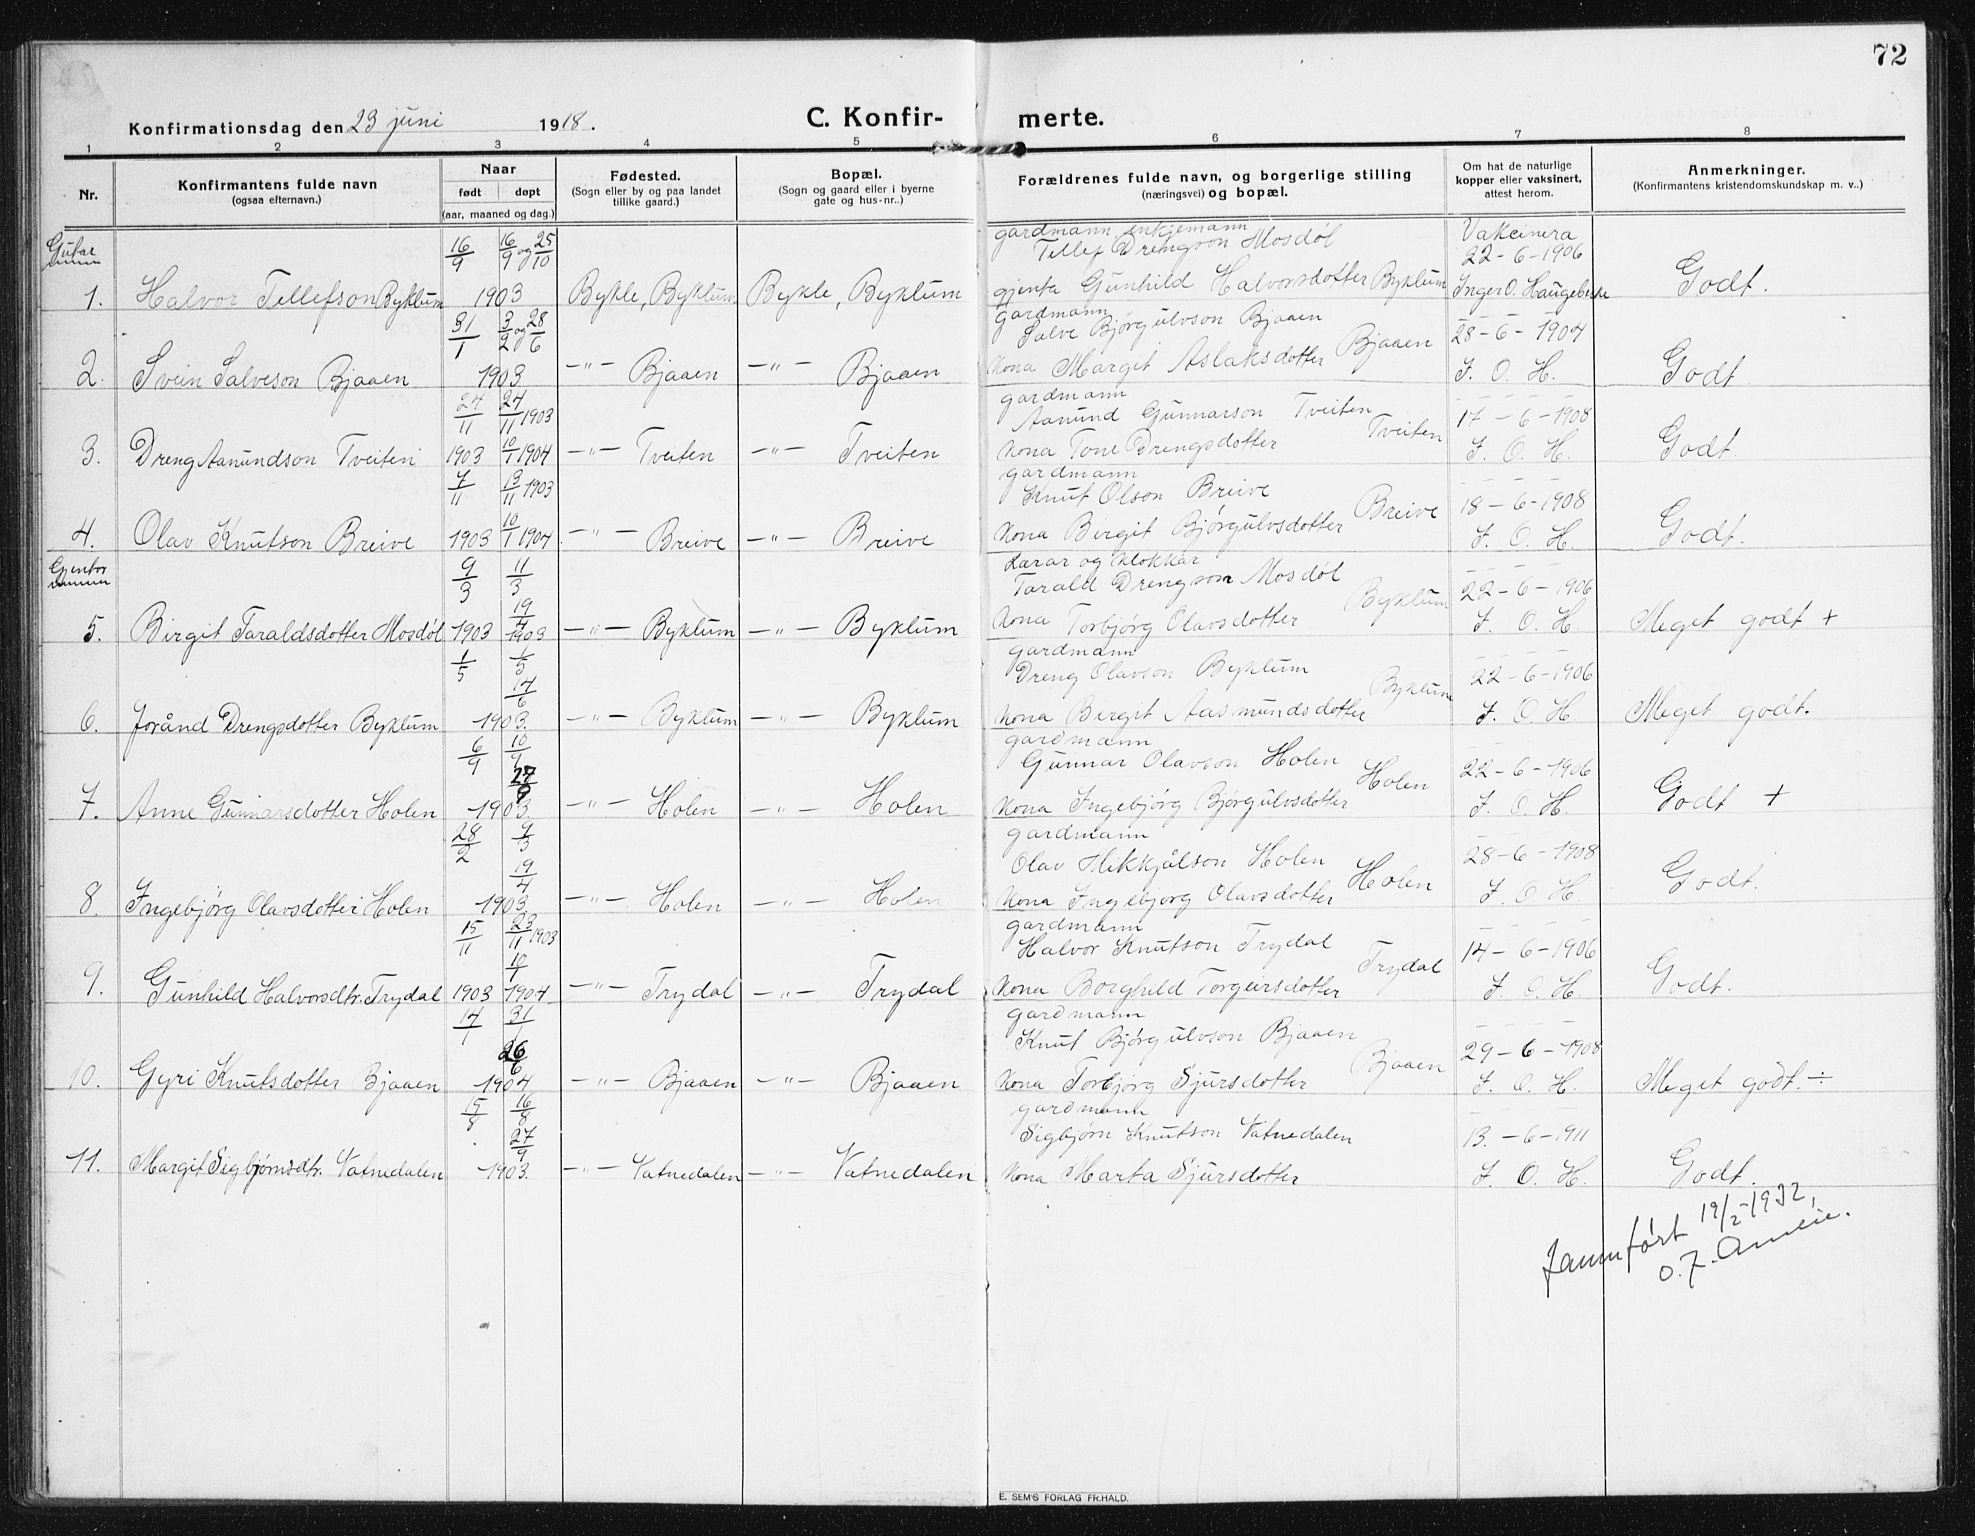 72
Konfirmationsdag den 23 juni 1918.
C. Konfir- merte.
1 2 3 4 5 6 7 8
Nr. Konfirmantens fulde navn (ogsaa efternavn.) Naar født døpt (aar, maaned og dag.) Fødested. (Sogn eller by og paa landet tillike gaard.) Bopæl. (Sogn og gaard eller i byerne gate og hus-nr..) Forældrenes fulde navn, og borgerlige stilling (næringsvei) og bopæl. Om hat de naturlige kopper eller vaksinert, attest herom. Anmerkninger. (Konfirmantens kristendomskundskap m. v..)
Gutar
gardmann, enkjemann Vakcinera
16/9 16/9 og 25/10 Tellef Drengson Mosdøl 22-6-1906
1. Halvor Tellefson Byklum 1903 Bykle, Byklum Bykle, Byklum gjenta Gunhild Halvorsdotter Byklum Inger O. Haugeberge Godt.
gardmann
31/1 3/2 og 28/6 Salve Bjørgulvson Bjaaen 28-6-1904
2. Svein Salveson Bjaaen 1903 -"- Bjaaen -"- Bjaaen Kona Margit Aslaksdotter Bjaaen I. O. H. Godt.
gardmann
24/11 24/11 1903 Aanund Gunnarson Tveiten 17-6-1908
3. Dreng Aanundson Tveiten 1903 10/1 1904 -"- Tveiten -"- Tveiten Kona Tone Drengsdotter Tveiten I. O. H. Godt.
gardmann
7/11 13/11 1903 Knut Olson Breive 18-6-1908
4. Olav Knutson Breive 1903 10/1 1904 -"- Breive -"- Breive Kona Birgit Bjørgulvsdotter Breive I. O. H. Godt.
Gjentor
Lærar og klokkar
9/3 11/3 Tarald Drengson Mosdøl 22-6-1906
5. Birgit Taraldsdotter Mosdøl 1903 19/4 1903 -"- Byklum -"- Byklum Kona Torbjørg Olavsdotter Byklum I. O. H. Meget godt +
gardmann
1/5 1/5 Dreng Olavson Byklum 22-6-1906
6. Jorånd Drengsdotter Byklum 14/6 1903. -"- Byklum -"- Byklum Kona Birgit Aasmundsdotter Byklum I. O. H. Meget godt.
gardmann
6/9 10/9 Gunnar Olavson Holen 22-6-1906
7. Anne Gunnarsdotter Holen 27/9 1903. -"- Holen -"- Holen Kona Ingebjørg Bjørgulvsdotter Holen I. O. H. Godt +
gardmann
28/2 9/3 Olav Mikkjålson Holen 28-6-1908
8. Ingebjörg Olavsdotter Holen 19/4 1903. -"- Holen -"- Holen Kona Ingebjorg Olavsdotter Holen I. O. H. Godt.
gardmann
15/11 23/11 1903 Halvor Knutson Trydal 14-6-1906
9. Gunhild Halvorsdtr. Trydal 1903 10/1 1904 -"- Trydal -"- Trydal Kona Borghild Torgeirsdotter Trydal I. O. H. Godt.
gardmann
14/1 31/1 Knut Bjørgulvson Bjaaen 29-6-1908
10. Gyri Knutsdotter Bjaaen 26/6 1904 -"- Bjaaen -"- Bjaaen Kona Torbjørg Sjursdotter Bjaaen I. O. H. Meget godt. ÷
gardmann
15/8 16/8 Sigbjørn Knutson Vatnedalen 13.-6-1911
11. Margit Sigbjørnsdtr. Vatnedalen 27/9 1903. -"- Vatnedalen -"- Vatnedalen Kona Marta Sjursdotter I. O. H. Godt.
Jamnført 19/2-1932,
O. J.
E. SEM'S FORLAG FR.HALD.